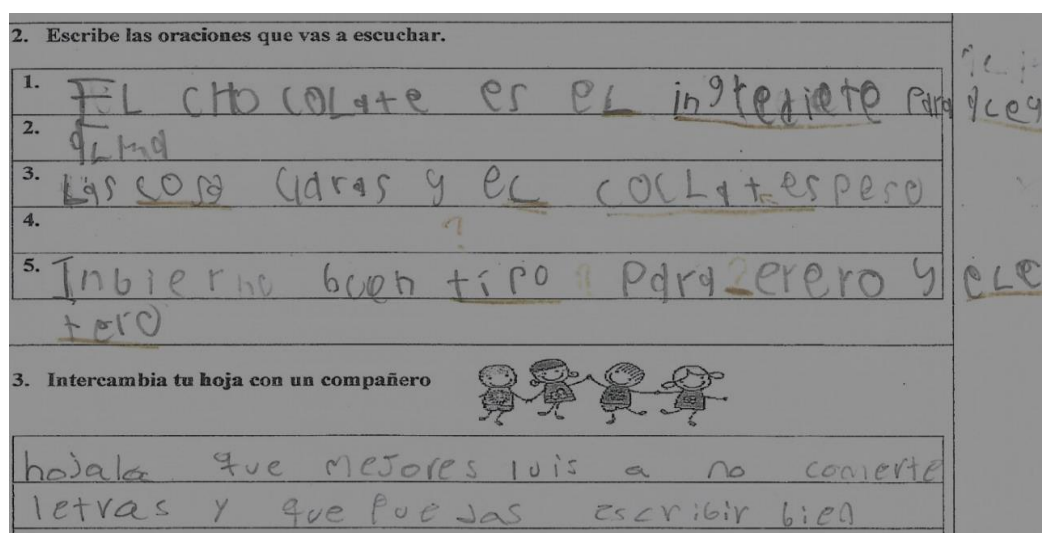 2. Escribe las oraciones que vas a escuchar.
1. EL CHOCOLate es EL ingrediete para
2. aLma
3. Las cosa claras y eL cocLate espeso
4. ?
5. Inbierno buen tipo para erero y eLe
tero
3. Intercambia tu hoja con un compañero
hojala que mejores luis a no comerte
letras y que puedas escribir bien